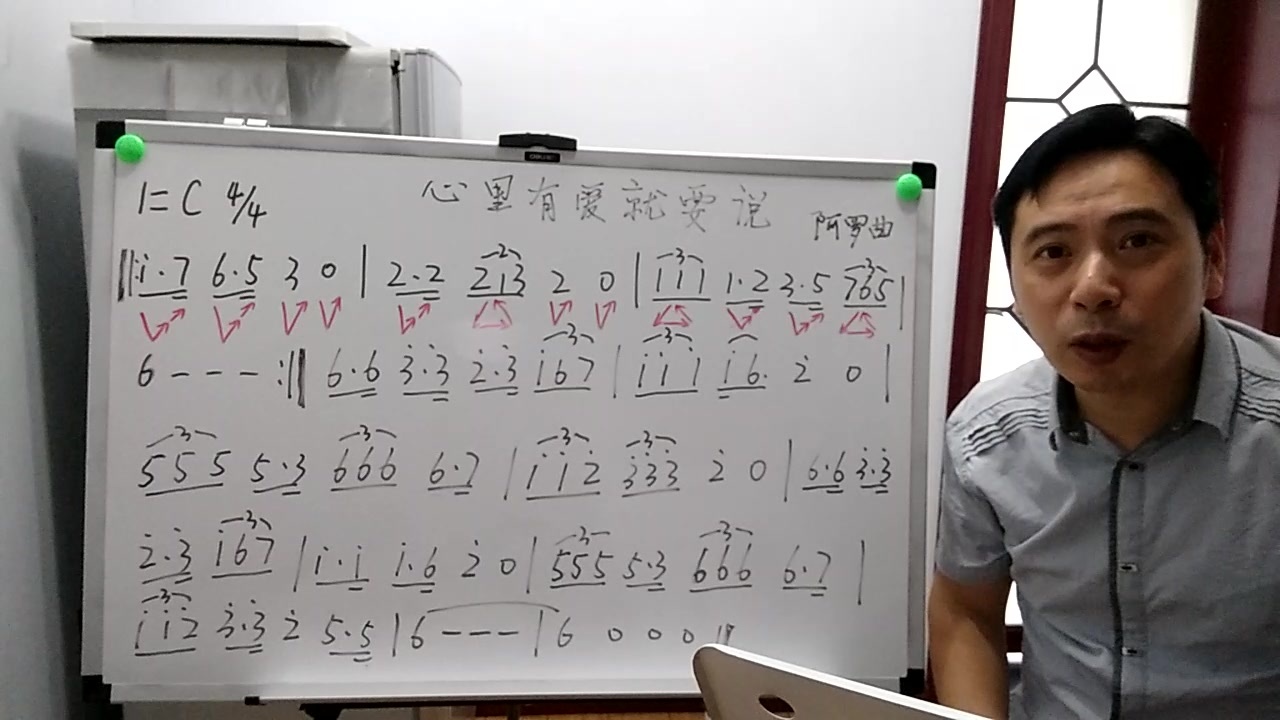 1=C 4/4 心里有爱就要说
阿罗曲
‖:i·7 6·5 3 0 | 2·2 213 2 0 | 111 1·2 3·5 765 |
6 - - - :‖ 6·6 3·3 2·3 i67 | iii i6· 2 0 |
555 5·3 666 6·7 | ii2 333 2 0 | 6·6 3·3
2·3 i67 | i·i i·6 2 0 | 555 5·3 666 6·7 |
ii2 3·3 2 5·5 | 6 - - - | 6 0 0 0 ‖